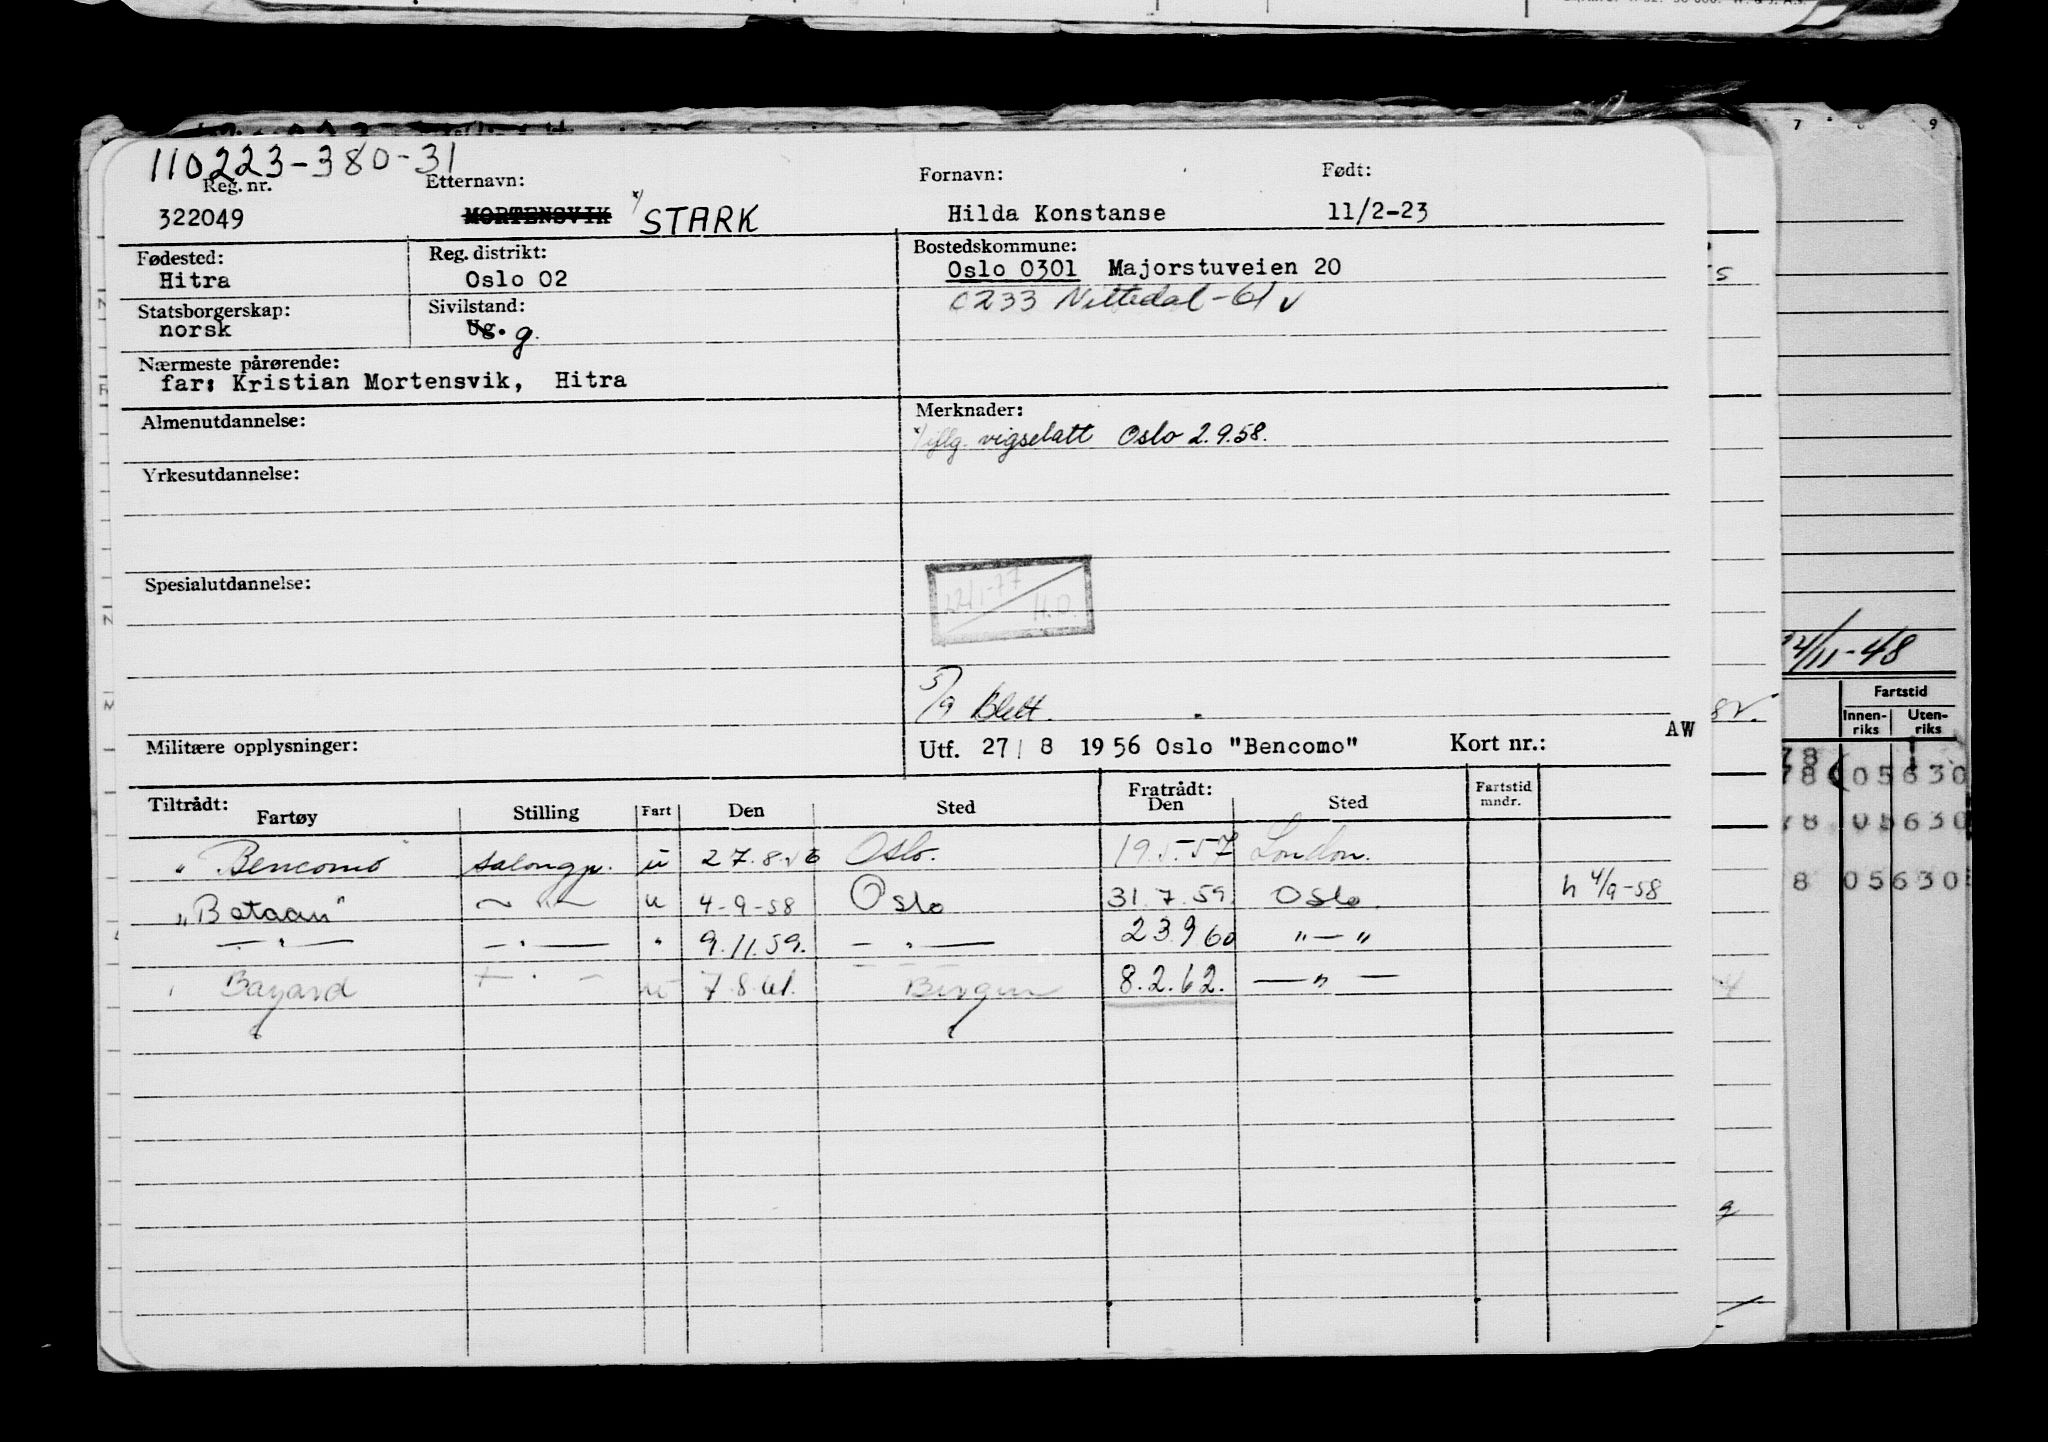 110223-380-31
Reg. nr. Etternavn: Fornavn: Født:
322049 MORTENSVIK x/ STARK Hilda Konstanse 11/2-23
Fødested: Reg. distrikt: Bostedskommune:
Hitra Oslo 02 Oslo 0301 Majorstuveien 20
0233 Nittedal-61 v
Statsborgerskap: Sivilstand:
norsk Ug. g.
Nærmeste pårørende:
far: Kristian Mortensvik, Hitra
Almenutdannelse: Merknader:
x/ iflg. vigselatt Oslo 2.9.58.
Yrkesutdannelse:
Spesialutdannelse:
H.O.
5/9 blett.
24/11-48
Fartstid
Innen-riks Uten-riks
AW
Militære opplysninger: Utf. 27/ 8 1956 Oslo "Bencomo" Kort nr.:
Tiltrådt: Fratrådt:
Fartøy Stilling Fart Den Sted Den Sted Fartstid mndr.
"Bencomo" salongp. u 27.8.56 Oslo. 19.5.57 London.
"Bataan" — " — u 4-9-58 Oslo 31.7.59. Oslo. h 4/9-58
— " — — " — " 9.11.59. — " — 23 9 60 " — "
Bayard — " — u 7.8.61. Bergen 8.2.62. — " —
78 05630
78 05630
8 05630